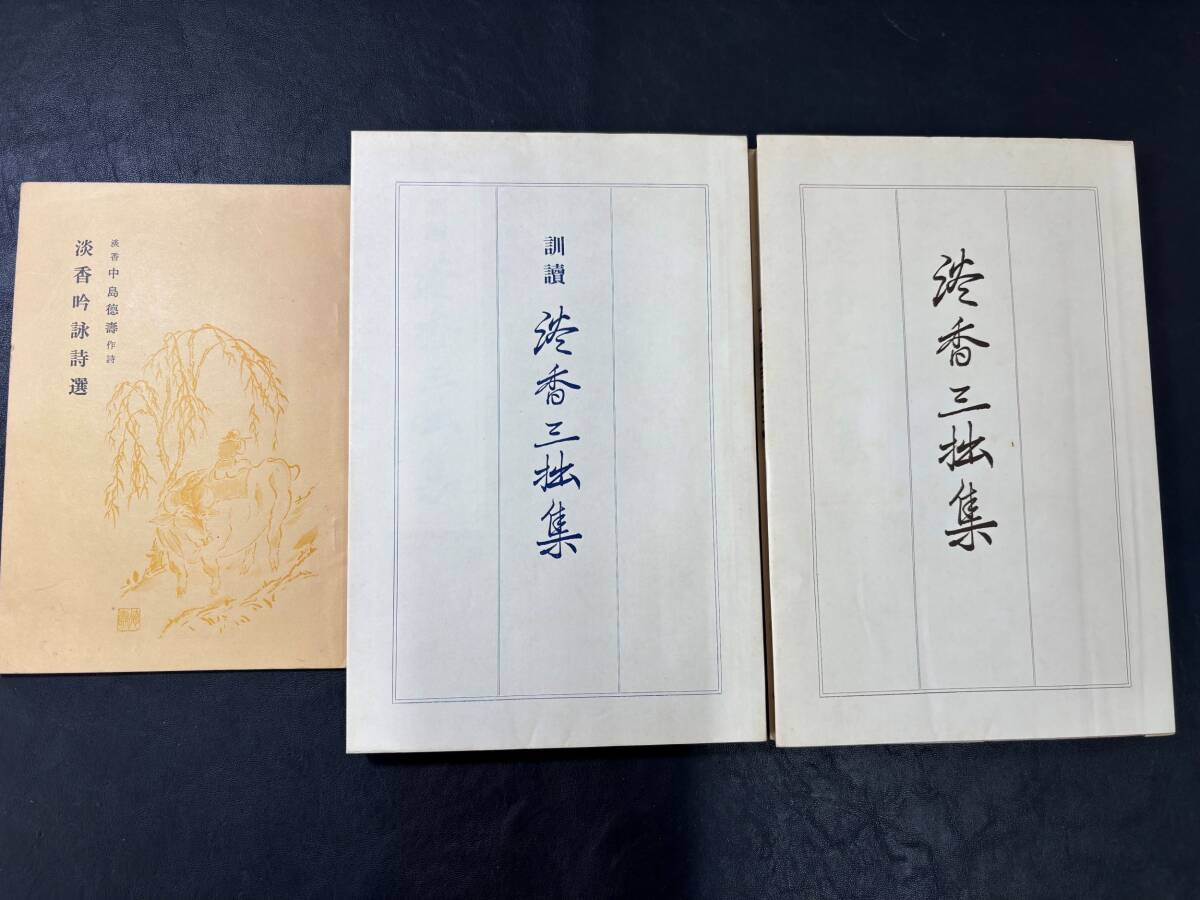 淡香中島徳壽作詩
淡香吟詠詩選
訓讀
淡香三拙集
淡香三拙集